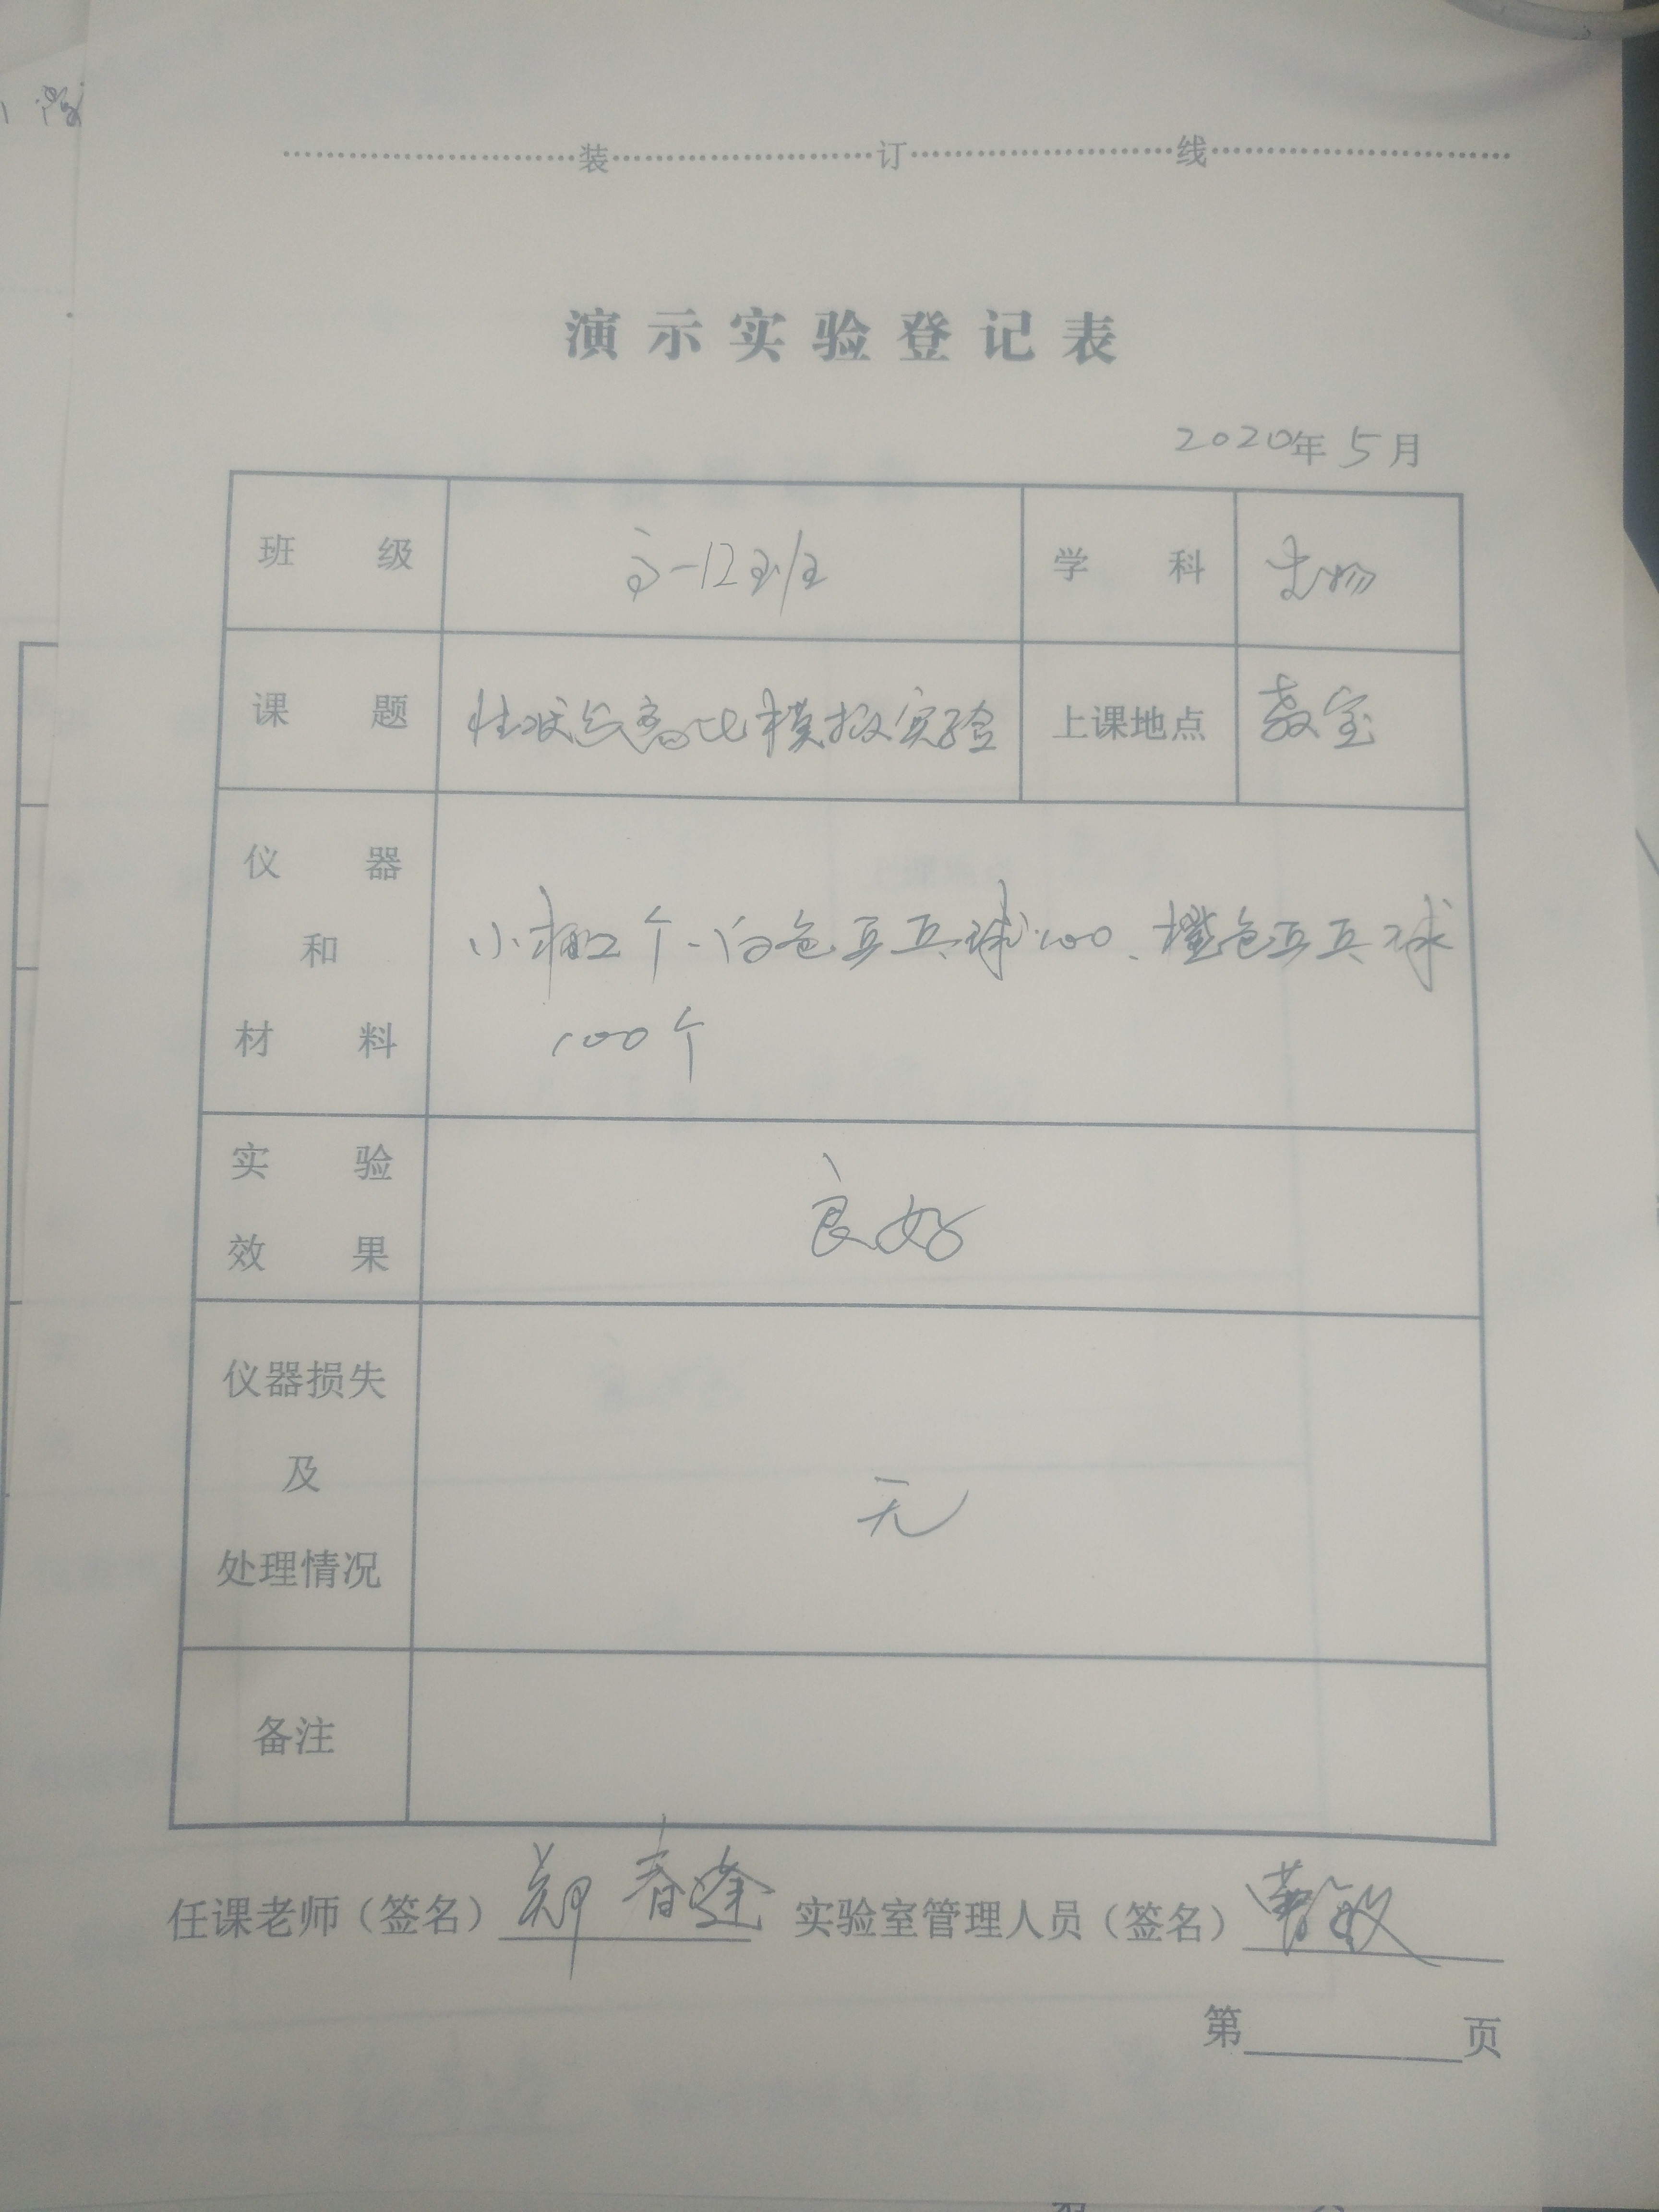 装 订 线
演示实验登记表
2020年 5月
班级 高一12班 学科 生物
课题 性状分离比模拟实验 上课地点 教室
仪器和材料
小桶2个、白色乒乓球100、橙色乒乓球
100个
实验效果 良好
仪器损失及处理情况 无
备注
任课老师(签名) 郑春 实验室管理人员(签名)
第 页